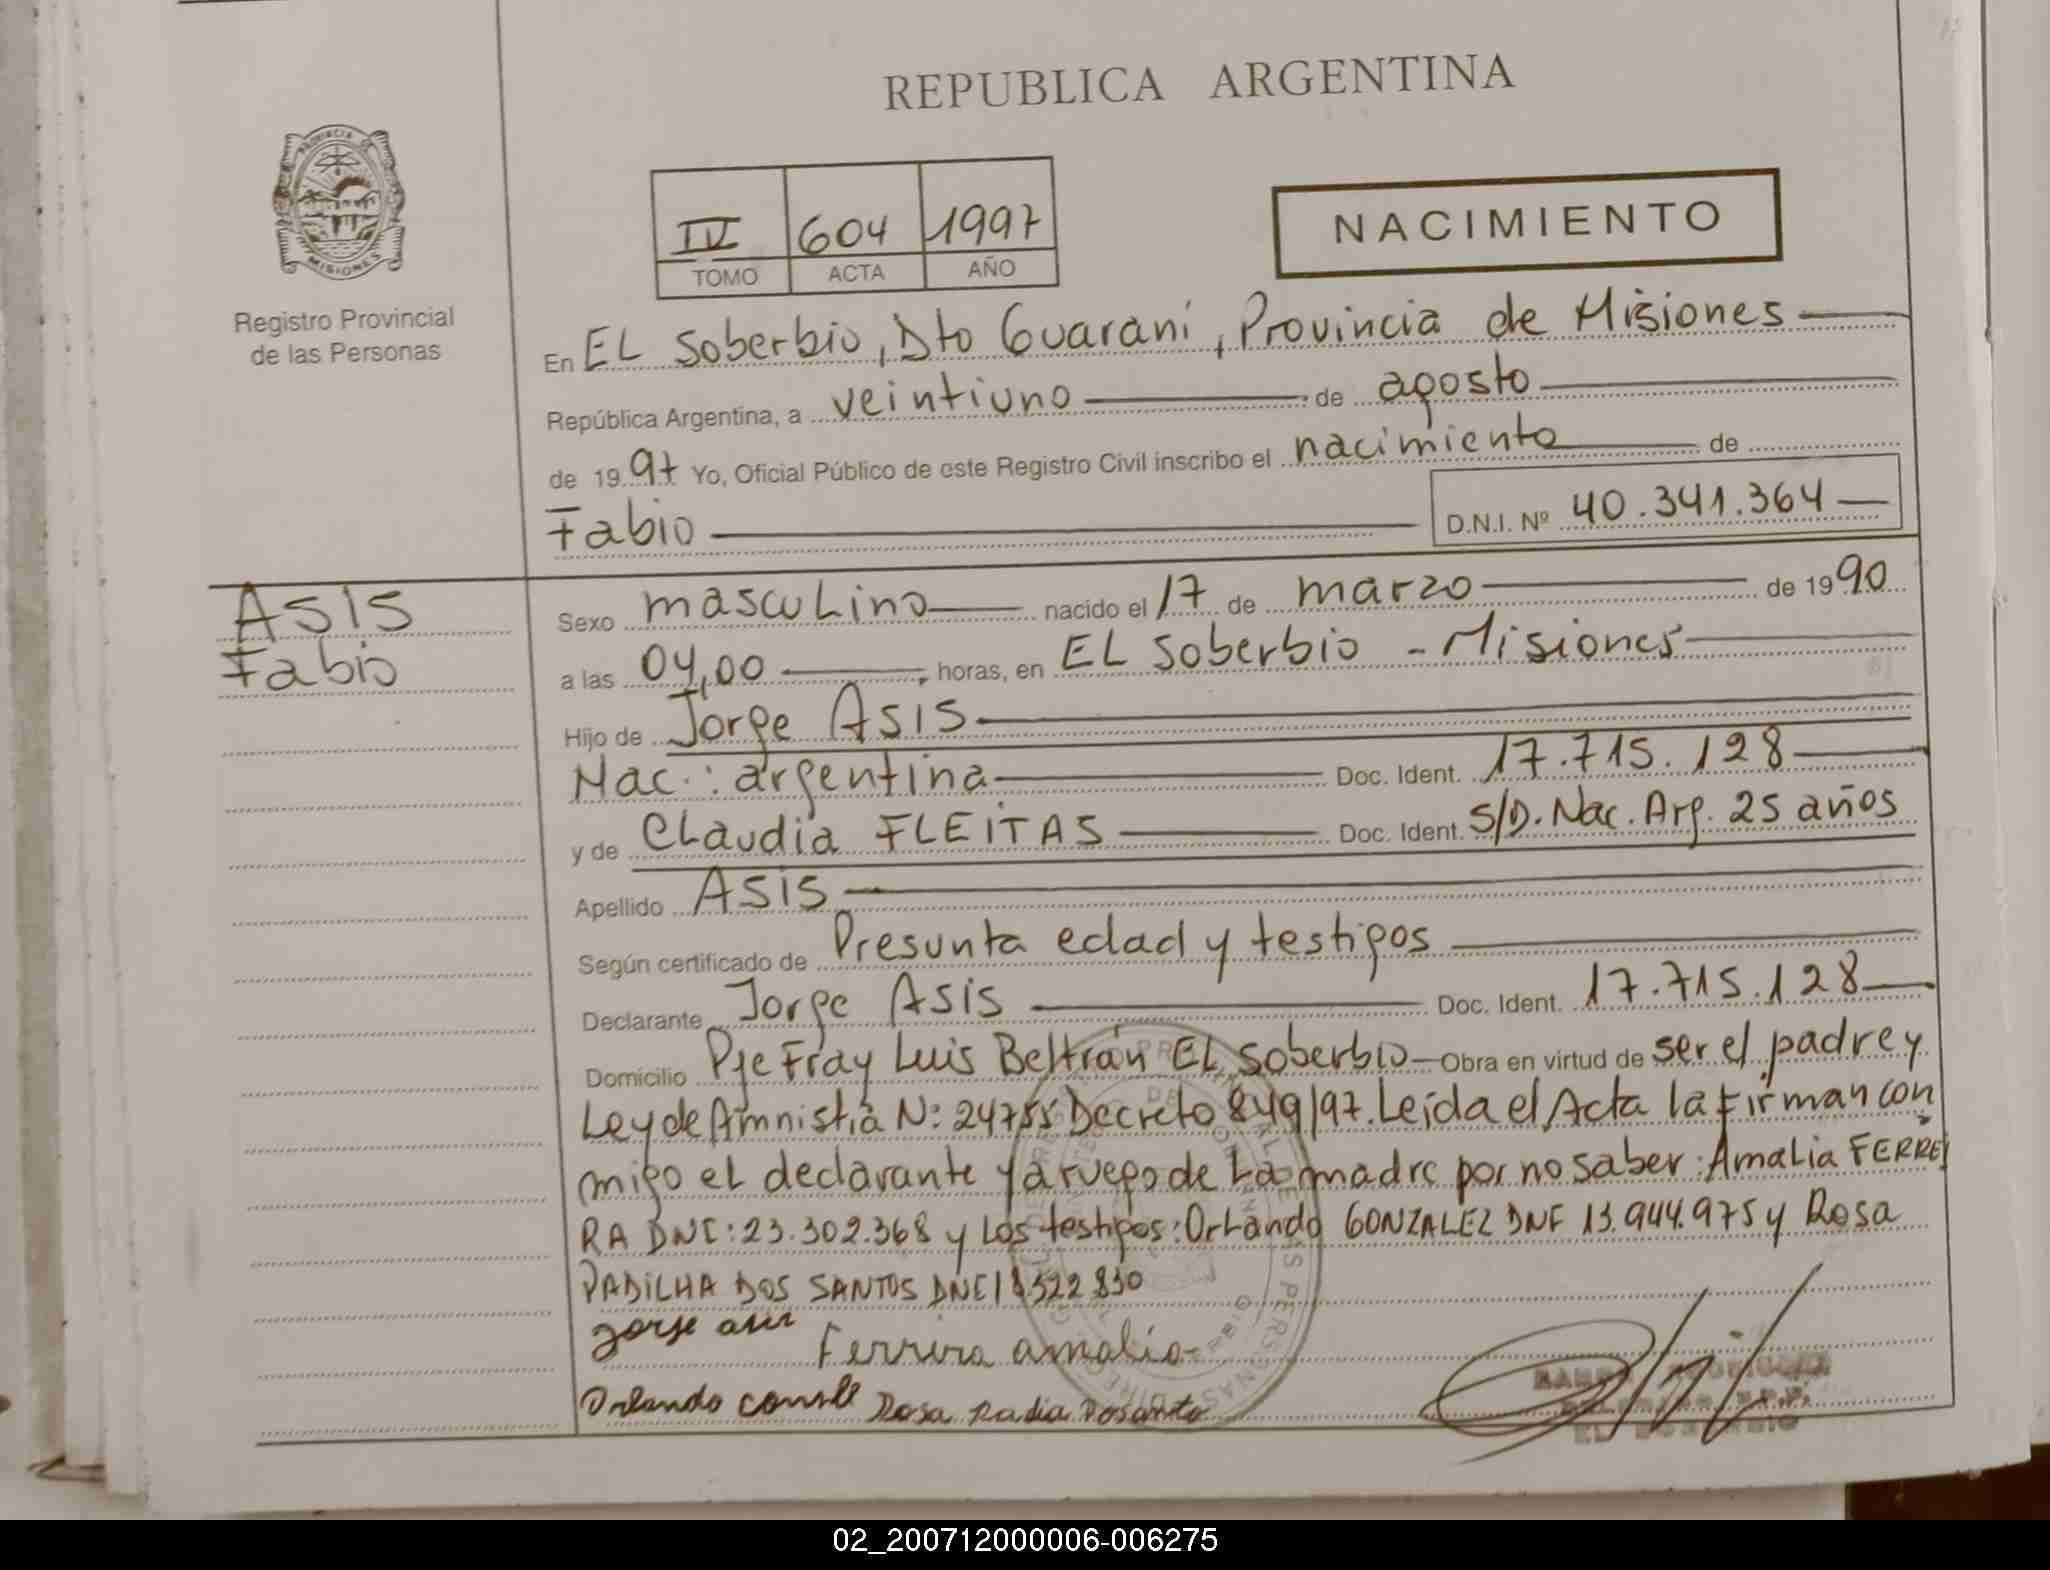 REPUBLICA ARGENTINA
PROVINCIA DE
MISIONES
Registro Provincial
de las Personas
IV 604 1997
TOMO ACTA AÑO
NACIMIENTO
En EL Soberbio, Dto Guaraní, Provincia de Misiones
República Argentina, a veintiuno de agosto
de 1997 Yo, Oficial Público de este Registro Civil inscribo el nacimiento de
Fabio D.N.I. Nº 40.341.364
ASIS
Fabio
Sexo mascuLino nacido el 17 de marzo de 1990
a las 04,00 horas, en EL Soberbio - Misiones
Hijo de Jorge ASIS
Nac.: argentina Doc. Ident. 17.715.128
y de CLaudia FLEITAS Doc. Ident. S/D. Nac. Arg. 25 años
Apellido ASIS
Según certificado de Presunta edad y testigos
Declarante Jorge ASIS Doc. Ident. 17.715.128
Domicilio Pje Fray Luis Beltrán EL Soberbio Obra en virtud de ser el padre y
Ley de Amnistia N: 24755 Decreto 849/97. Leida el Acta la firman con
migo eL declarante y a ruego de La madre por no saber: AmaLia FERREI
RA DNI: 23.302.368 y Los testigos: OrLando GONZALEZ DNI 13.944.975 y Rosa
PADILHA DOS SANTOS DNI 18322830
Jorge asis
Ferreira amalia
Orlando Rosa Padia Dosanto
EL SOBERBIO
02_200712000006-006275